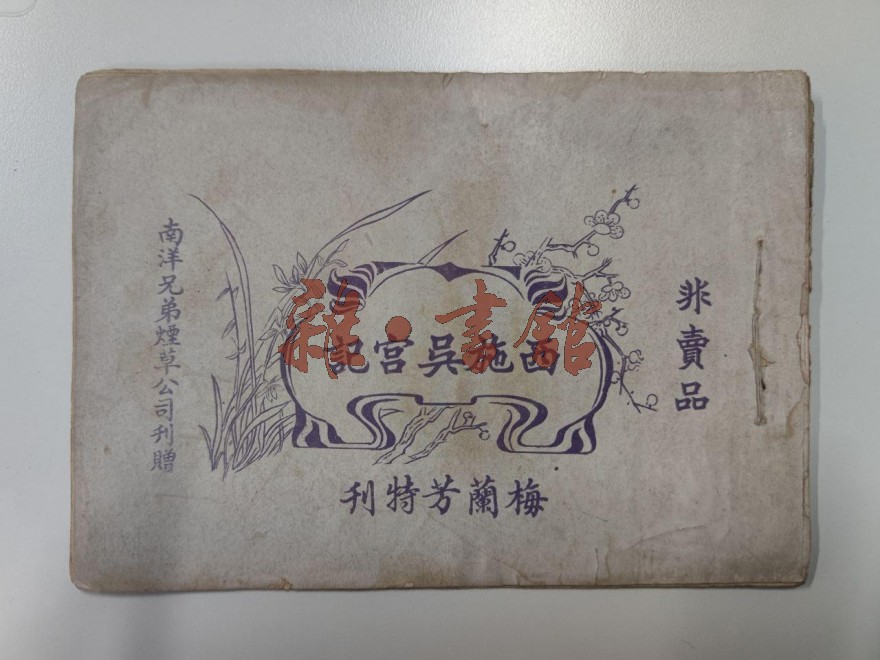 非賣品
西施吳宮記
梅蘭芳特刊
南洋兄弟煙草公司刋贈
雜·書館